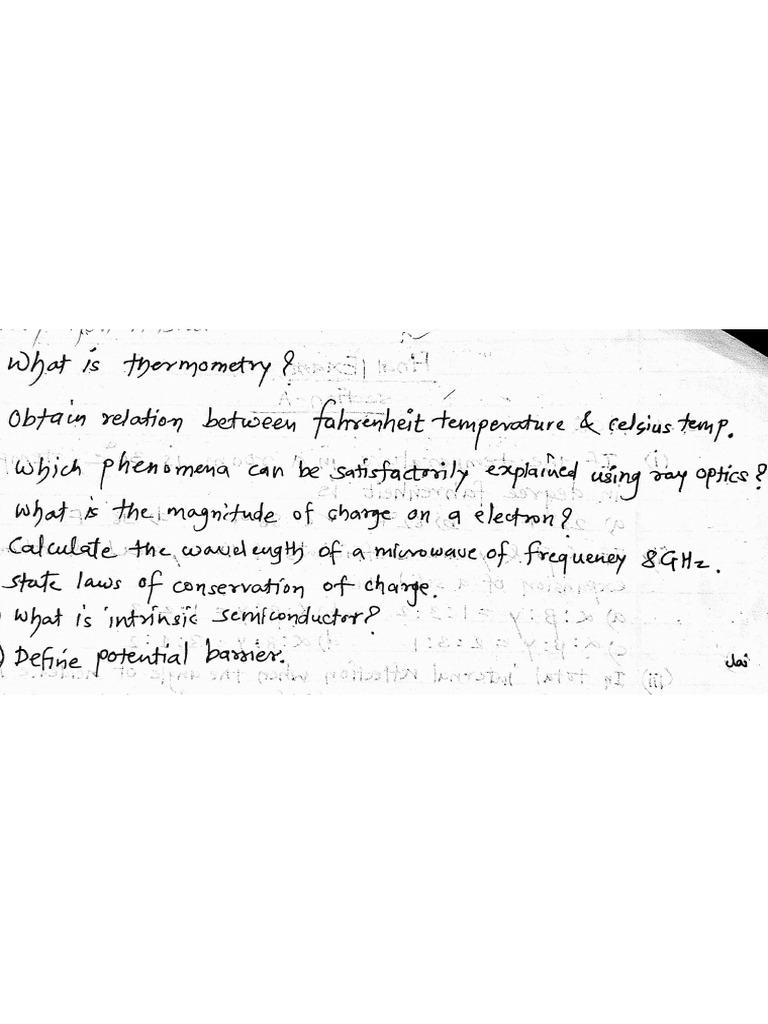 What is thermometry?
Obtain relation between fahrenheit temperature & celsius temp.
Which phenomena can be satisfactorily explained using ray optics?
What is the magnitude of charge on a electron?
Calculate the wavelength of a microwave of frequency 8GHz.
State laws of conservation of charge.
What is intrinsic semiconductor?
) Define potential barrier.
Jai